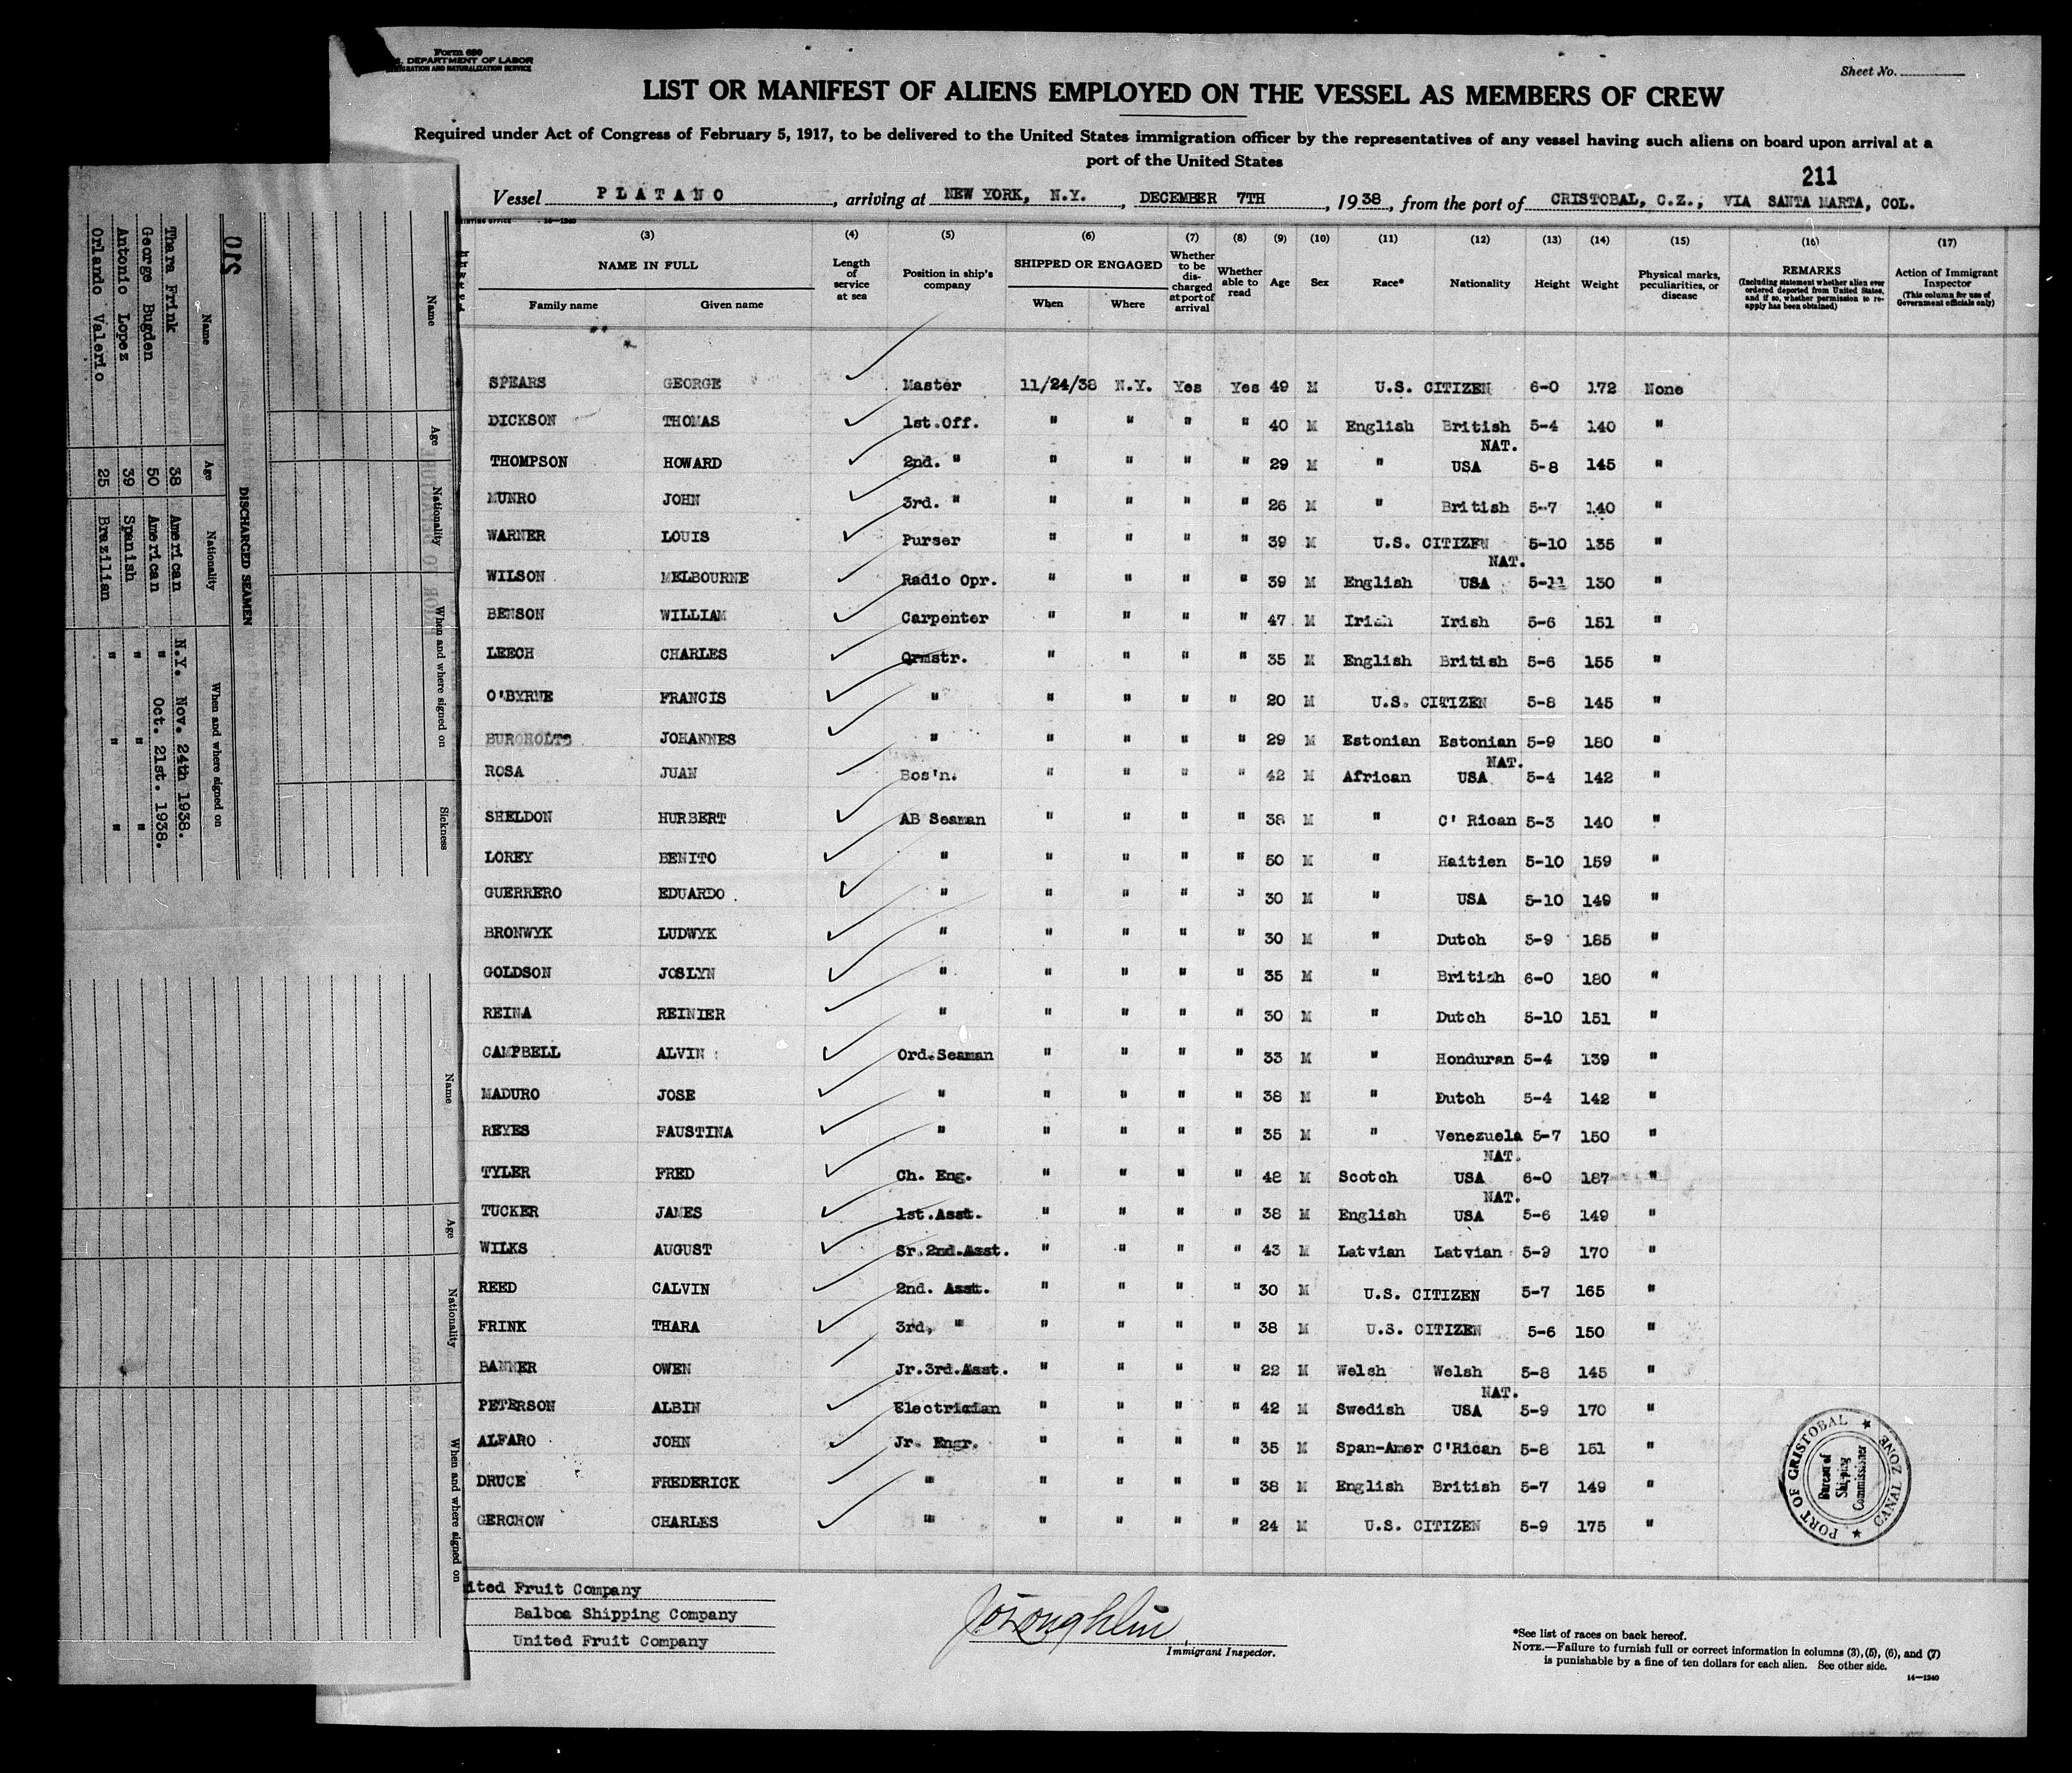 Form 680
DEPARTMENT OF LABOR
IMMIGRATION AND NATURALIZATION SERVICE
Sheet No.
LIST OR MANIFEST OF ALIENS EMPLOYED ON THE VESSEL AS MEMBERS OF CREW
Required under Act of Congress of February 5, 1917, to be delivered to the United States immigration officer by the representatives of any vessel having such aliens on board upon arrival at a
port of the United States
211
Vessel PLATANO, arriving at NEW YORK, N.Y., DECEMBER 7TH, 1938, from the port of CRISTOBAL, C.Z., VIA SANTA MARTA, COL.
14—1240
(3) (4) (5) (6) (7) (8) (9) (10) (11) (12) (13) (14) (15) (16) (17)
NAME IN FULL Length of service at sea Position in ship's company SHIPPED OR ENGAGED Whether to be discharged at port of arrival Whether able to read Age Sex Race* Nationality Height Weight Physical marks, peculiarities, or disease REMARKS (Including statement whether alien ever ordered deported from United States, and if so, whether permission to reapply has been obtained) Action of Immigrant Inspector (This column for use of Government officials only)
Family name Given name When Where
SPEARS GEORGE Master 11/24/38 N.Y. Yes Yes 49 M U.S. CITIZEN 6-0 172 None
DICKSON THOMAS 1st.Off. " " " " 40 M English British 5-4 140 "
THOMPSON HOWARD 2nd. " " " " " 29 M " NAT. USA 5-8 145 "
MUNRO JOHN 3rd. " " " " " 26 M " British 5-7 140 "
WARNER LOUIS Purser " " " " 39 M U.S. CITIZEN 5-10 135 "
WILSON MELBOURNE Radio Opr. " " " " 39 M English NAT. USA 5-11 130 "
BENSON WILLIAM Carpenter " " " " 47 M Irish Irish 5-6 151 "
LEECH CHARLES Qrmstr. " " " " 35 M English British 5-6 155 "
O'BYRNE FRANCIS " " " " " 20 M U.S. CITIZEN 5-8 145 "
BURGHOLTS JOHANNES " " " " " 29 M Estonian Estonian 5-9 180 "
ROSA JUAN Bos'n. " " " " 42 M African NAT. USA 5-4 142 "
SHELDON HURBERT AB Seaman " " " " 38 M " C' Rican 5-3 140 "
LOREY BENITO " " " " " 50 M " Haitien 5-10 159 "
GUERRERO EDUARDO " " " " " 30 M " USA 5-10 149 "
BRONWYK LUDWYK " " " " " 30 M " Dutch 5-9 185 "
GOLDSON JOSLYN " " " " " 35 M " British 6-0 180 "
REINA REINIER " " " " " 30 M " Dutch 5-10 151 "
CAMPBELL ALVIN Ord.Seaman " " " " 33 M " Honduran 5-4 139 "
MADURO JOSE " " " " " 38 M " Dutch 5-4 142 "
REYES FAUSTINA " " " " " 35 M " Venezuela 5-7 150 "
TYLER FRED Ch. Eng. " " " " 48 M Scotch NAT. USA 6-0 187 "
TUCKER JAMES 1st.Asst. " " " " 38 M English NAT. USA 5-6 149 "
WILKS AUGUST Sr.2nd.Asst. " " " " 43 M Latvian Latvian 5-9 170 "
REED CALVIN 2nd. Asst. " " " " 30 M U.S. CITIZEN 5-7 165 "
FRINK THARA 3rd, " " " " " 38 M U.S. CITIZEN 5-6 150 "
BANNER OWEN Jr.3rd.Asst. " " " " 22 M Welsh Welsh 5-8 145 "
PETERSON ALBIN Electrician " " " " 42 M Swedish NAT. USA 5-9 170 "
ALFARO JOHN Jr. Engr. " " " " 35 M Span-Amer C'Rican 5-8 151 "
DRUCE FREDERICK " " " " " 38 M English British 5-7 149 "
GERCHOW CHARLES " " " " " 24 M U.S. CITIZEN 5-9 175 "
PORT OF CRISTOBAL ★ CANAL ZONE ★
Bureau of
Shipping
Commissioner
ited Fruit Company
Balboa Shipping Company
United Fruit Company
Immigrant Inspector.
*See list of races on back hereof.
NOTE.—Failure to furnish full or correct information in columns (3), (5), (6), and (7)
is punishable by a fine of ten dollars for each alien. See other side.
14—1240
210
DISCHARGED SEAMEN
Name Age Nationality When and where signed on
Thara Frink 38 American N.Y. Nov. 24th 1938.
George Bugden 50 American " Oct. 21st. 1938.
Antonio Lopez 39 Spanish " " "
Orlando Valerio 25 Brazilian " " "
Name Age Nationality When and where signed on Sickness
Name Age Nationality When and where signed on